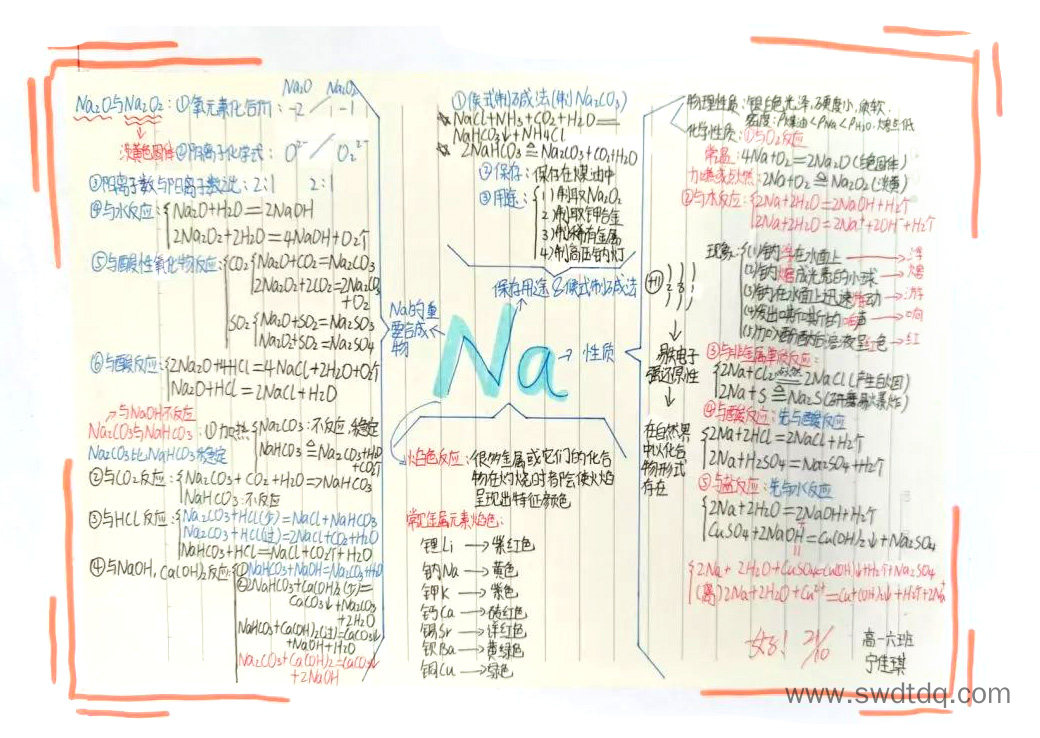 Na₂O Na₂O₂
Na₂O与Na₂O₂：①氧元素化合价：-2 / -1
淡黄色固体 ②阴离子化学式：O²⁻ / O₂²⁻
③阴离子数与阳离子数之比：2:1 2:1
④与水反应：{Na₂O+H₂O=2NaOH
2Na₂O₂+2H₂O=4NaOH+O₂↑
⑤与酸性氧化物反应：{CO₂{Na₂O+CO₂=Na₂CO₃
2Na₂O₂+2CO₂=2Na₂CO₃
+O₂
SO₂{Na₂O+SO₂=Na₂SO₃
Na₂O₂+SO₂=Na₂SO₄
⑥与酸反应：{2Na₂O+4HCl=4NaCl+2H₂O+O₂↑
Na₂O+HCl=2NaCl+H₂O
与NaOH不反应
Na₂CO₃与NaHCO₃：①加热{Na₂CO₃：不反应，稳定
Na₂CO₃比NaHCO₃稳定
NaHCO₃≜Na₂CO₃+H₂O
+CO₂↑
②与CO₂反应：{Na₂CO₃+CO₂+H₂O=>NaHCO₃
NaHCO₃：不反应
③与HCl反应：{Na₂CO₃+HCl(少)=NaCl+NaHCO₃
Na₂CO₃+HCl(过)=2NaCl+CO₂+H₂O
NaHCO₃+HCl=NaCl+CO₂↑+H₂O
④与NaOH，Ca(OH)₂反应：{①NaHCO₃+NaOH=Na₂CO₃+H₂O
②2NaHCO₃+Ca(OH)₂(少)=
CaCO₃↓+Na₂CO₃
+2H₂O
NaHCO₃+Ca(OH)₂(过)=CaCO₃↓
+NaOH+H₂O
Na₂CO₃+Ca(OH)₂=CaCO₃↓
+2NaOH
Na的重
要合成
物
①侯式制碱法(制Na₂CO₃)
☆NaCl+NH₃+CO₂+H₂O=
NaHCO₃↓+NH₄Cl
☆2NaHCO₃≜Na₂CO₃+CO₂+H₂O
②保存：保存在煤油中
③用途：{1)制取Na₂O₂
2)制取钾合金
3)制稀有金属
4)制高压钠灯
保存用途&侯式制碱法
Na
性质
焰色反应：很多金属或它们的化合
物在灼烧时都会使火焰
呈现出特征颜色
常见金属元素焰色：
锂Li→紫红色
钠Na→黄色
钾K→紫色
钙Ca→砖红色
锶Sr→洋红色
钡Ba→黄绿色
铜Cu→绿色
物理性质：银白色光泽，硬度小，质软，
密度：ρ煤油<ρNa<ρH₂O，熔点低
化学性质：①与O₂反应
常温：4Na+O₂=2Na₂O(绝固体)
加热或点燃：2Na+O₂≜Na₂O₂(淡黄)
②与水反应：{2Na+2H₂O=2NaOH+H₂↑
2Na+2H₂O=2Na⁺+2OH⁻+H₂↑
现象：{(1)钠浮在水面上→浮
(2)钠熔成光亮的小球→熔
(3)钠在水面上迅速游动→游
(4)发出嘶嘶的响声→响
(5)加入酚酞后溶液呈红色→红
+11 2 8 1
易失电子
强还原性
在自然界
中以化合
物形式
存在
③与非金属单质反应：
{2Na+Cl₂=点燃=2NaCl(产生白烟)
2Na+S≜Na₂S(研磨易爆炸)
④与酸反应：先与酸反应
{2Na+2HCl=2NaCl+H₂↑
2Na+H₂SO₄=Na₂SO₄+H₂↑
⑤与盐反应：先与水反应
{2Na+2H₂O=2NaOH+H₂↑
CuSO₄+2NaOH=Cu(OH)₂↓+Na₂SO₄
{2Na+2H₂O+CuSO₄=Cu(OH)₂↓+H₂↑+Na₂SO₄
(离)2Na+2H₂O+Cu²⁺=Cu(OH)₂↓+H₂↑+2Na⁺
21/10
高一六班
宁佳琪
www.swdtdq.com